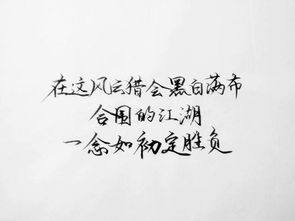 在这风云猎会黑白满布
合围的江湖
一念如初定胜负